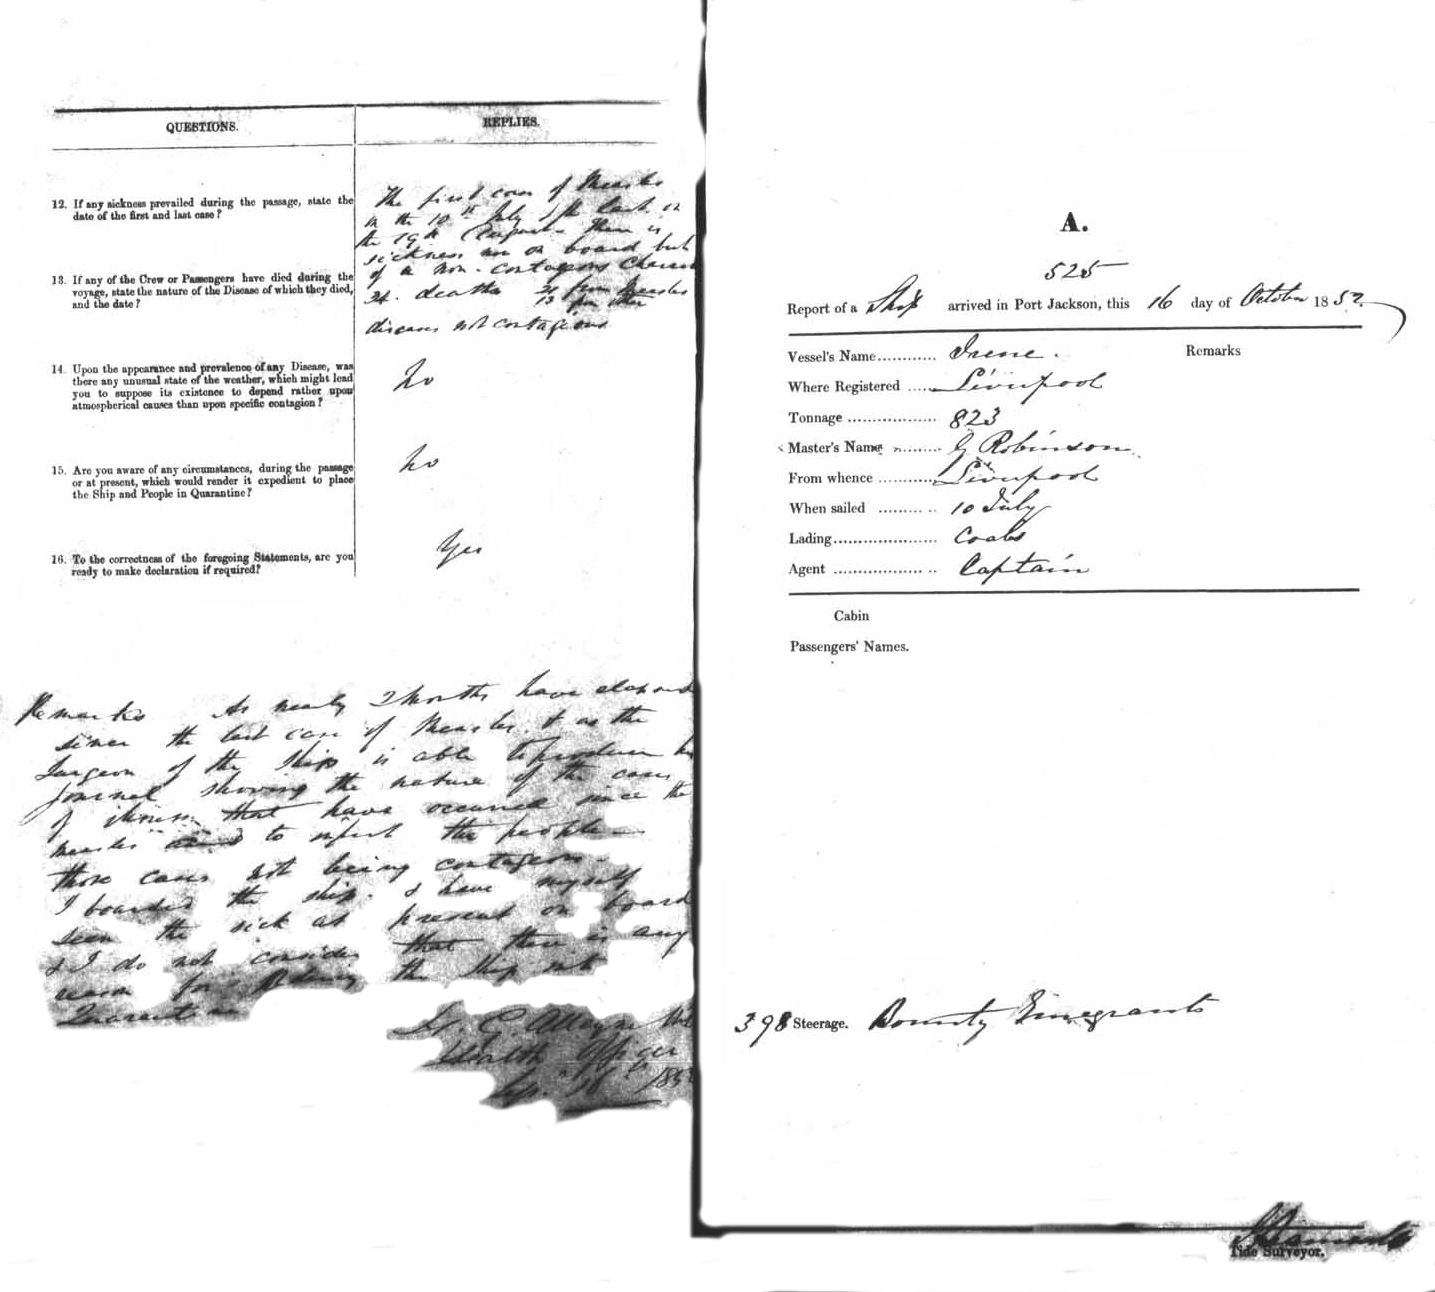 QUESTIONS.
REPLIES.
12. If any sickness prevailed during the passage, state the
date of the first and last case?
The first case of Measles
on the 10th July & the last on
the 19th August. There is
sickness now on board but
of a non-contagious
13. If any of the Crew or Passengers have died during the
voyage, state the nature of the Disease of which they died,
and the date?
deaths 21 from Measles
13 from other
diseases not contagious
14. Upon the appearance and prevalence of any Disease, was
there any unusual state of the weather, which might lead
you to suppose its existence to depend rather upon
atmospherical causes than upon specific contagion?
No
15. Are you aware of any circumstances, during the passage
or at present, which would render it expedient to place
the Ship and People in Quarantine?
No
16. To the correctness of the foregoing Statements, are you
ready to make declaration if required?
Yes
Remarks As nearly 2 Months have elapsed
since the last case of Measles & as the
Surgeon of the Ship is able to produce his
Journal showing the nature of the cases
of illness that have occurred since the
Measles to infect the people
those cases not being contagious.
I boarded the ship & have myself
seen the sick at present on board
& I do not consider that there is any
reason for the ship
Quarantine
Health Officer
A.
525
Report of a Ship arrived in Port Jackson, this 16 day of October 1852
Vessel's Name............ Irene.
Remarks
Where Registered ...... Liverpool
Tonnage .................. 823
Master's Name ......... G Robinson
From whence ............ Liverpool
When sailed ......... .. 10 July
Lading..................... Coals
Agent .................. .. Captain
Cabin
Passengers' Names.
398 Steerage. Bounty Emigrants
Tide Surveyor.